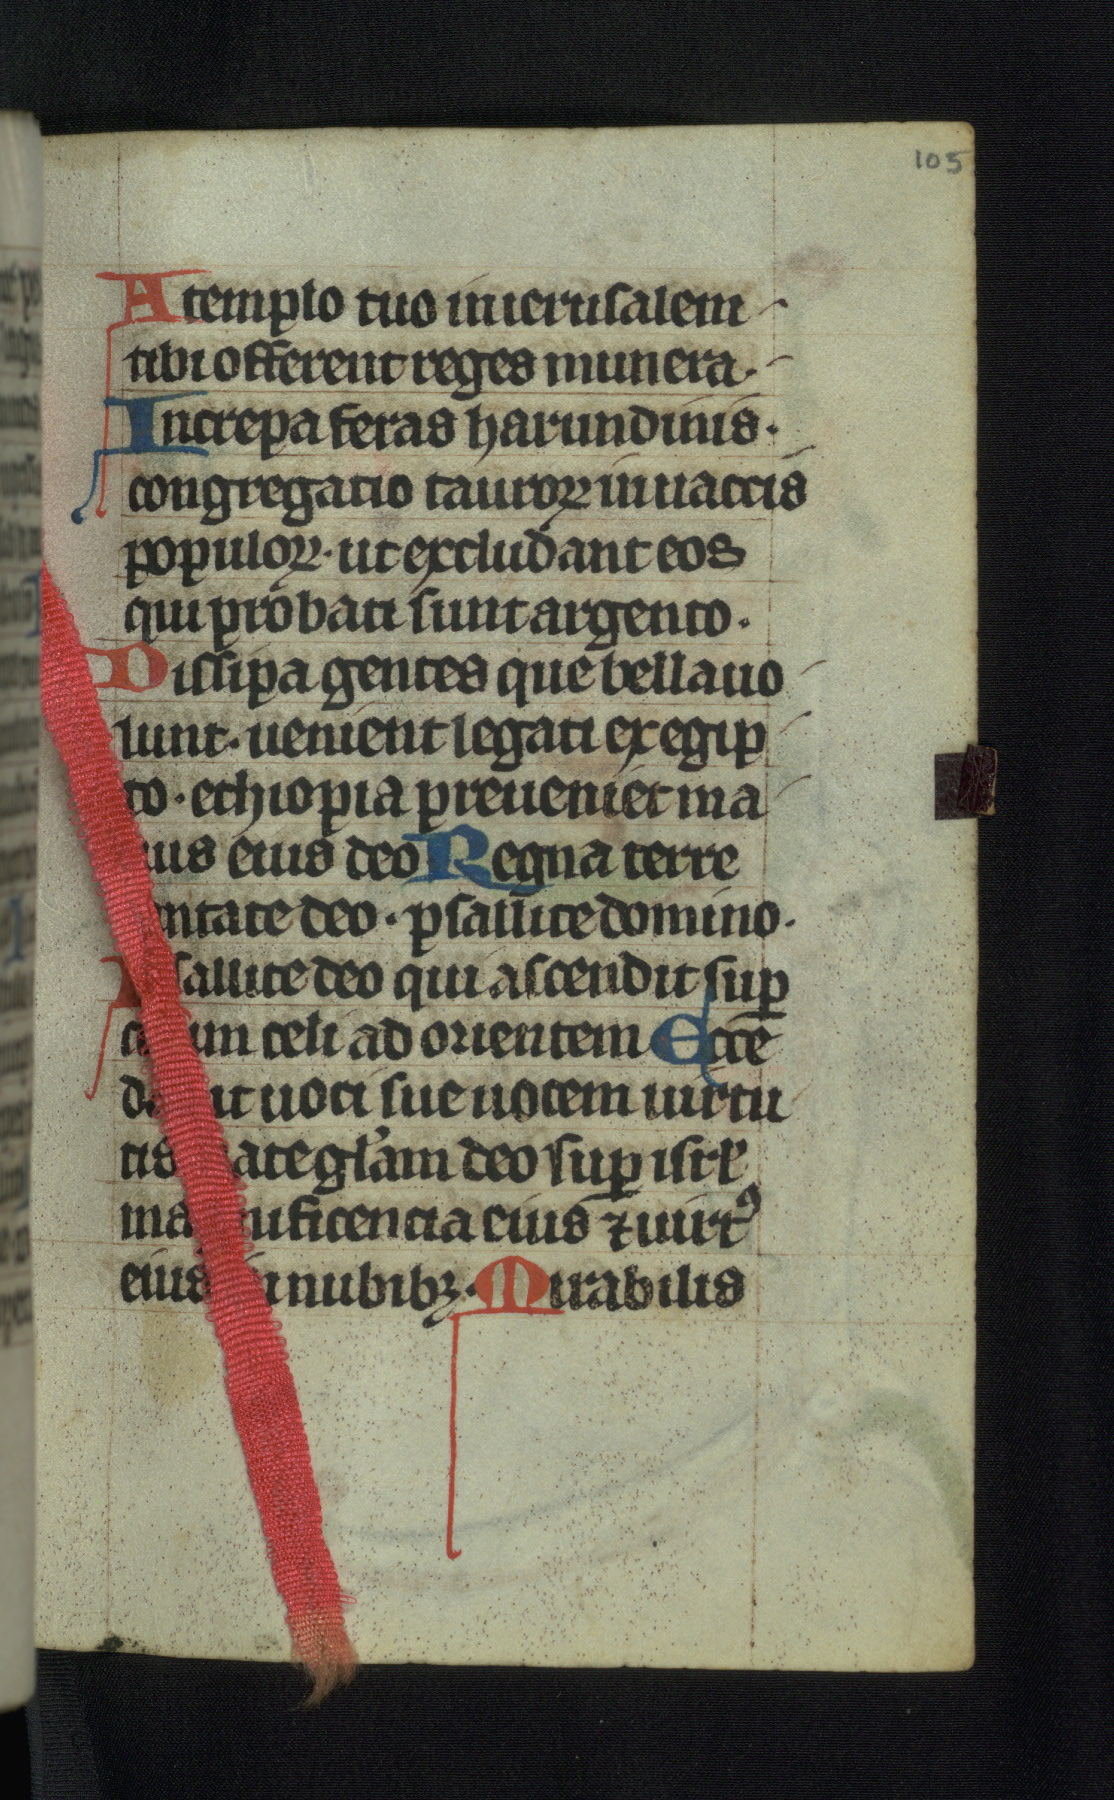 105
A templo tuo in ierusalem
tibi offerent reges munera.
Increpa feras harundinis.
congregatio tauroꝝ in uaccis
populoꝝ. ut excludant eos
qui probati sunt argento.
Dissipa gentes que bella uo
lunt. uenient legati ex egip
to. ethiopia preueniet ma
eius deo Regna terre
deo. psallite domino.
deo qui ascendit suꝑ
celi ad orientem Ecce
uoci sue uocem uirtu
tis gl'am deo suꝑ isrl'
eius ⁊ uirtꝰ
eius nubibꝫ. Mirabilis